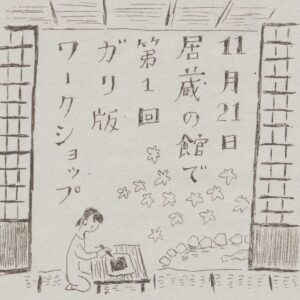 11月21日
居蔵の館で
第1回
ガリ版
ワークショップ